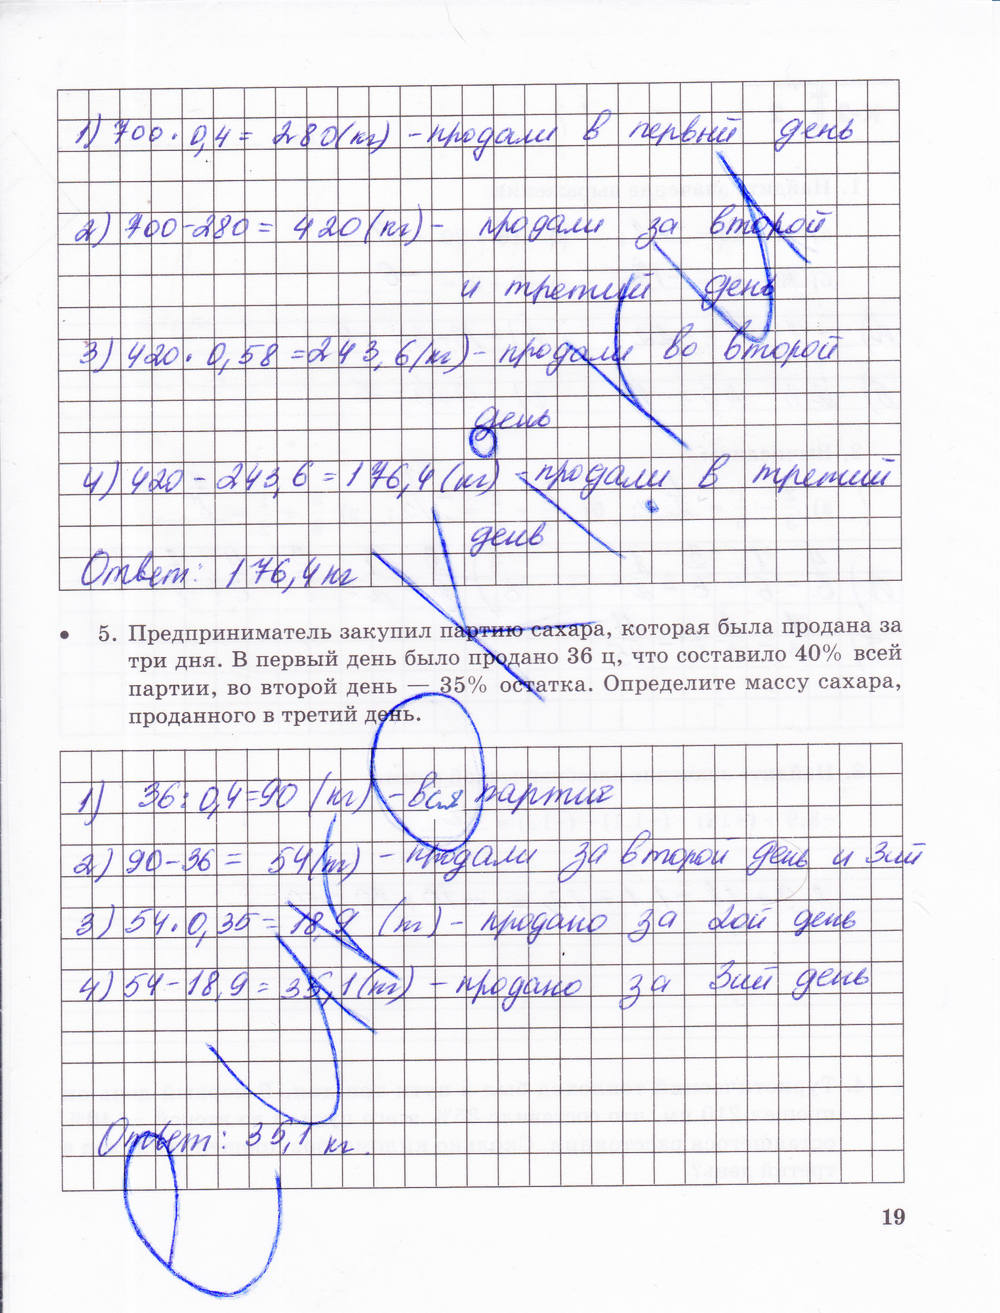 1) 700 · 0,4 = 280 (кг) - продали в первый день
2) 700 - 280 = 420 (кг) - продали за второй
и третий день
3) 420 · 0,58 = 243,6 (кг) - продали во второй
день
4) 420 - 243,6 = 176,4 (кг) - продали в третий
день
Ответ: 176,4 кг
• 5. Предприниматель закупил партию сахара, которая была продана за
три дня. В первый день было продано 36 ц, что составило 40% всей
партии, во второй день — 35% остатка. Определите массу сахара,
проданного в третий день.
1) 36 : 0,4 = 90 (кг) - вся партия
2) 90 - 36 = 54 (т) - продали за второй день и 3ий
3) 54 · 0,35 = 18,9 (т) - продано за 2ой день
4) 54 - 18,9 = 35,1 (т) - продано за 3ий день
Ответ: 35,1 кг.
19